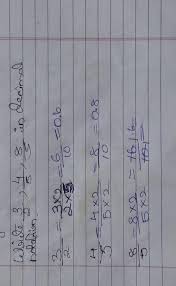 Write 3/5, 4/5, 8/5 in decimal
notation.
3/2 = 3×2/2×5 = 6/10 = 0.6
4/5 = 4×2/5×2 = 8/10 = 0.8
8/5 = 8×2/5×2 = 16